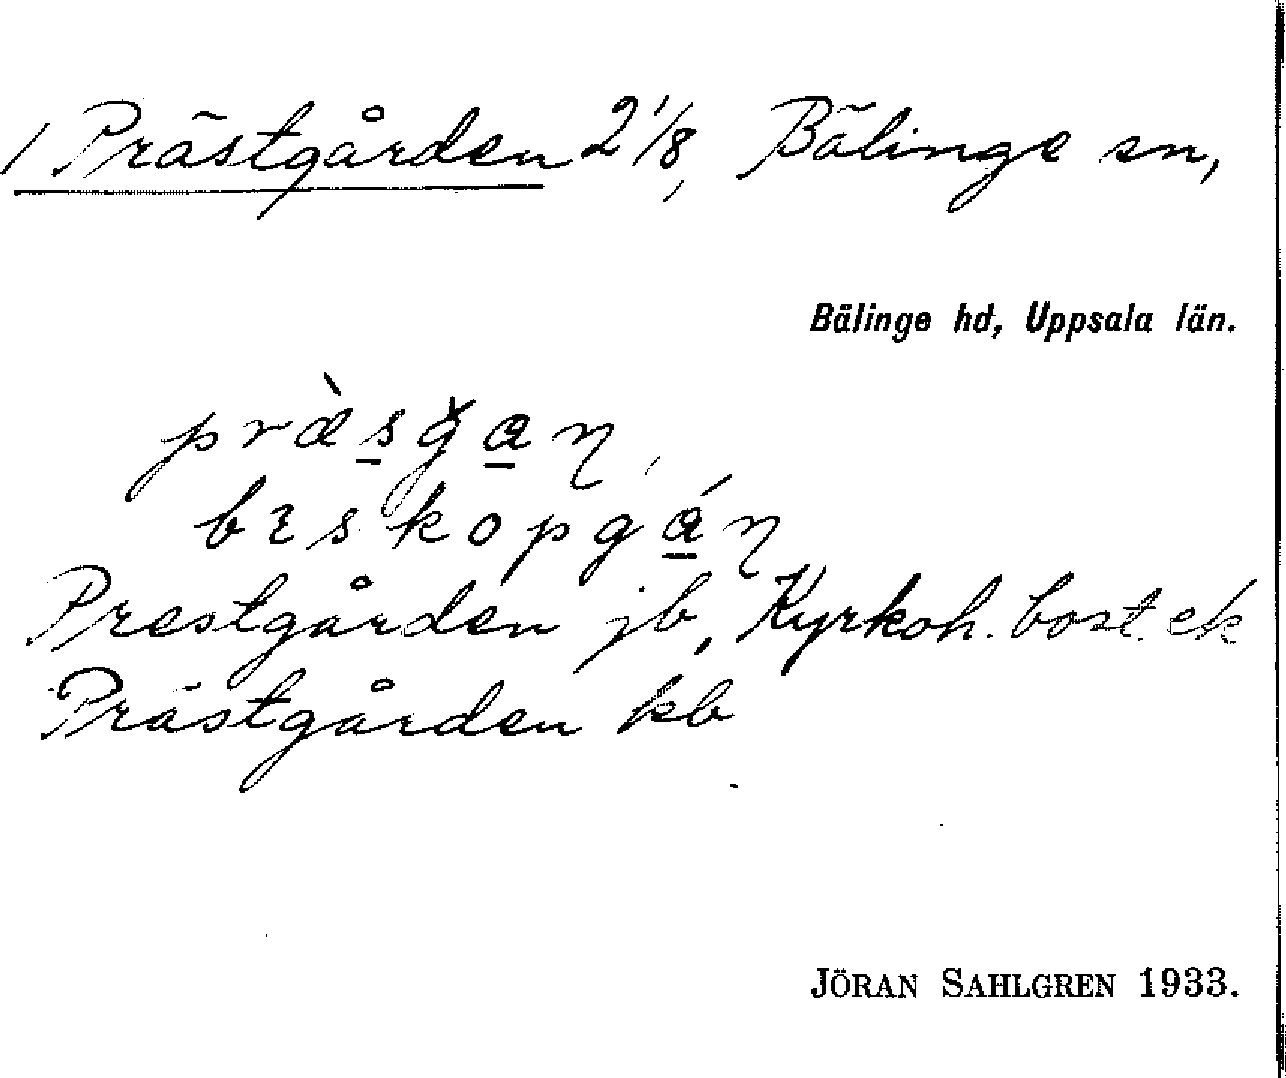 1 Prästgården 2 1/8, Bälinge sn,
Bälinge hd, Uppsala län.
præ̀sgan,
bɪskopgán
Prestgården jb, Kyrkoh. bost. ek
Prästgården kb
JÖRAN SAHLGREN 1933.